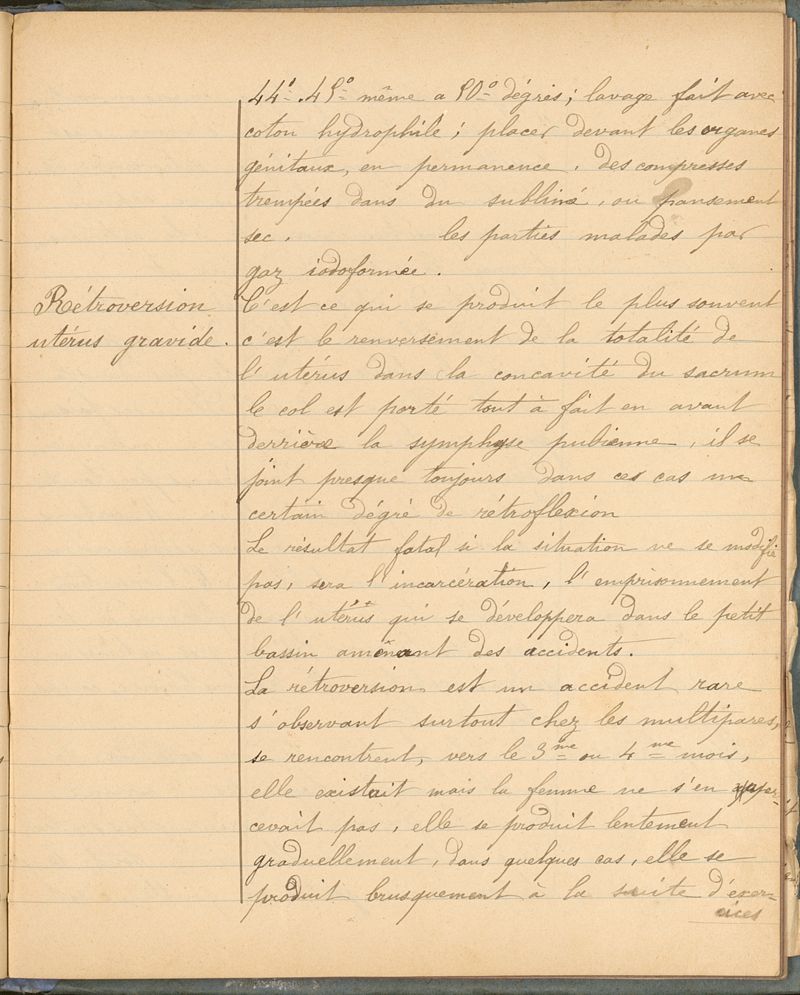 44°. 45° même a 50° dégrés; lavage fait avec
coton hydrophile; placer devant les organes
génitaux, en permanence, des compresses
trempées dans du sublimé, ou pansement
sec. les parties malades par
gaz iodoformée.
Rétroversion
utérus gravide.
C'est ce qui se produit le plus souvent
c'est le renversement de la totalité de
l'utérus dans la concavité du sacrum
le col est porté tout à fait en avant
derrière la symphyse pubienne, il se
joint presque toujours dans ces cas un
certain dégré de rétroflexion
Le résultat fatal si la situation ne se modifie
pas, sera l'incarcération, l'emprisonnement
de l'utérus qui se développera dans le petit
bassin amenant des accidents.
La rétroversion est un accident rare
s'observant surtout chez les multipares,
se rencontrent, vers le 3me ou 4me mois,
elle existait mais la femme ne s'en aper-
cevait pas, elle se produit lentement
graduellement, dans quelques cas, elle se
produit brusquement à la suite d'exer-
cices